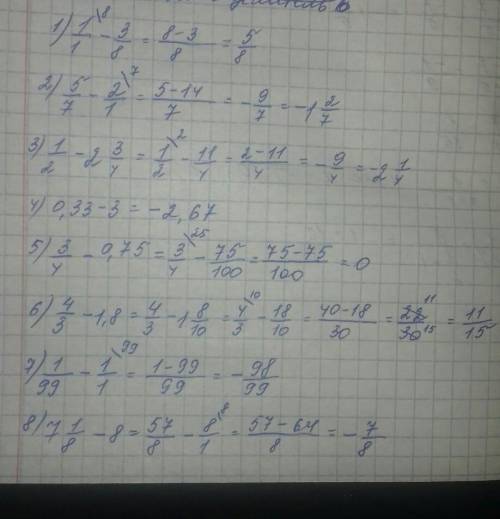 1) 1/1 \8 - 3/8 = 8-3/8 = 5/8
2) 5/7 - 2/1 \7 = 5-14/7 = -9/7 = -1 2/7
3) 1/2 - 2 3/4 = 1/2 \2 - 11/4 = 2-11/4 = -9/4 = -2 1/4
4) 0,33-3 = -2,67
5) 3/4 - 0,75 = 3/4 \25 - 75/100 = 75-75/100 = 0
6) 4/3 - 1,8 = 4/3 - 1 8/10 = 4/3 \10 - 18/10 = 40-18/30 = 22 11/30 15 = 11/15
7) 1/99 - 1/1 \99 = 1-99/99 = -98/99
8) 7 1/8 - 8 = 57/8 - 8/1 \8 = 57-64/8 = -7/8